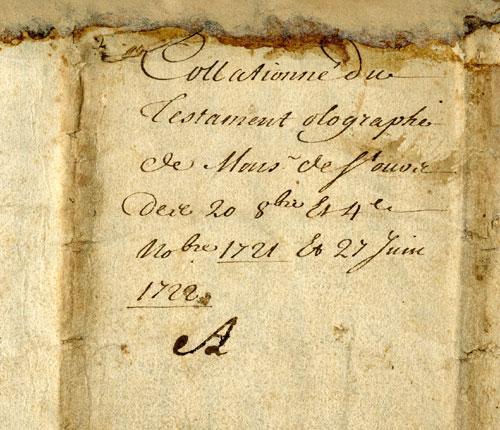 Collationné du
Testament olographe
de Mons.r de St ouvis
de 20 8bre Et 4e
Nobre 1721 Et 27 Juin
1722
A